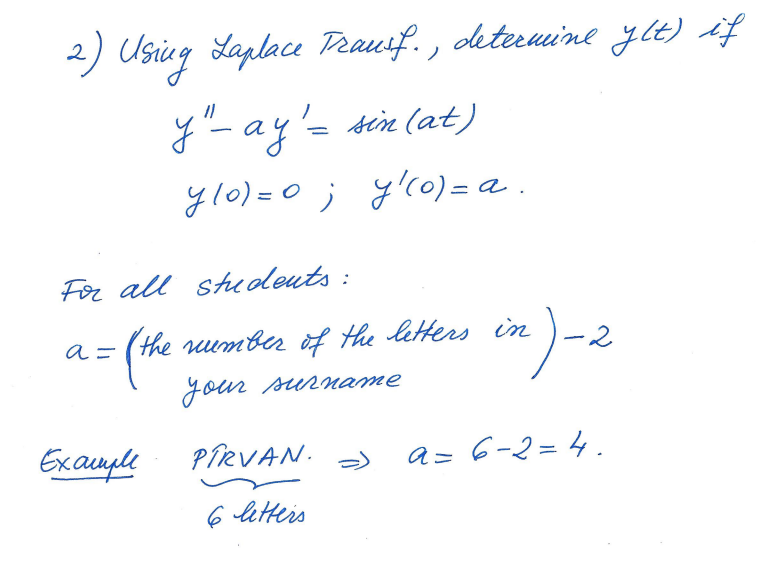 2) Using Laplace Transf., determine y(t) if
y'' - ay' = sin(at)
y(0) = 0 ; y'(0) = a.
For all students:
a = (the number of the letters in your surname) - 2
Example PÎRVAN. ⇒ a = 6-2 = 4.
6 letters